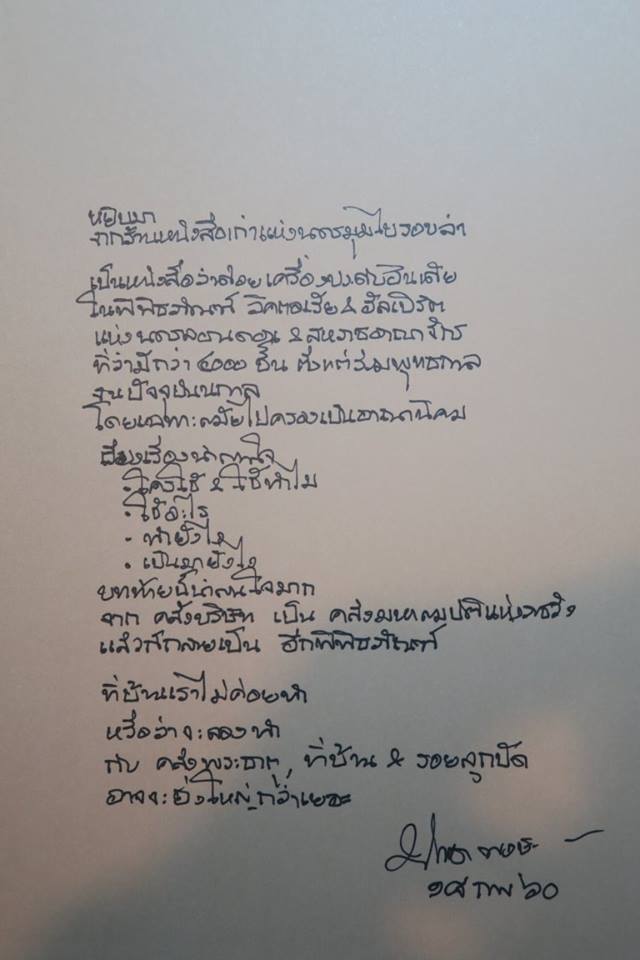 หยิบมา
จากร้านหนังสือเก่าแห่งนครมุมไบรอบล่า
เป็นหนังสือว่าด้วยเครื่องประดับอินเดีย
ในพิพิธภัณฑ์ วิคตอเรีย & อัลเบิร์ต
แห่งนครลอนดอน & สหราชอาณาจักร
ที่ว่ามีกว่า ๔๐๐๐ ชิ้น ตั้งแต่ร่วมพุทธกาล
จนปัจจุบันนกาล
โดยเฉพาะสมัยไปครองเป็นอาณานิคม
เรื่องน่าสนใจ
. ใครใช้ & ใช้ทำไม
. ใช้อะไร
- ทำยังไง
. เป็นมายังไง
บทท้ายนี้น่าสนใจมาก
จาก คลังบริษัท เป็น คลังมหาสมบัติแห่งราชวัง
แล้วก็กลายเป็น อีกพิพิธภัณฑ์
ที่บ้านเราไม่ค่อยทำ
หรือว่าจะลองทำ
กับ คลังพระธาตุ, ที่บ้าน & รอยลูกปัด
อาจจะยิ่งใหญ่กว่าเยอะ
๖๐